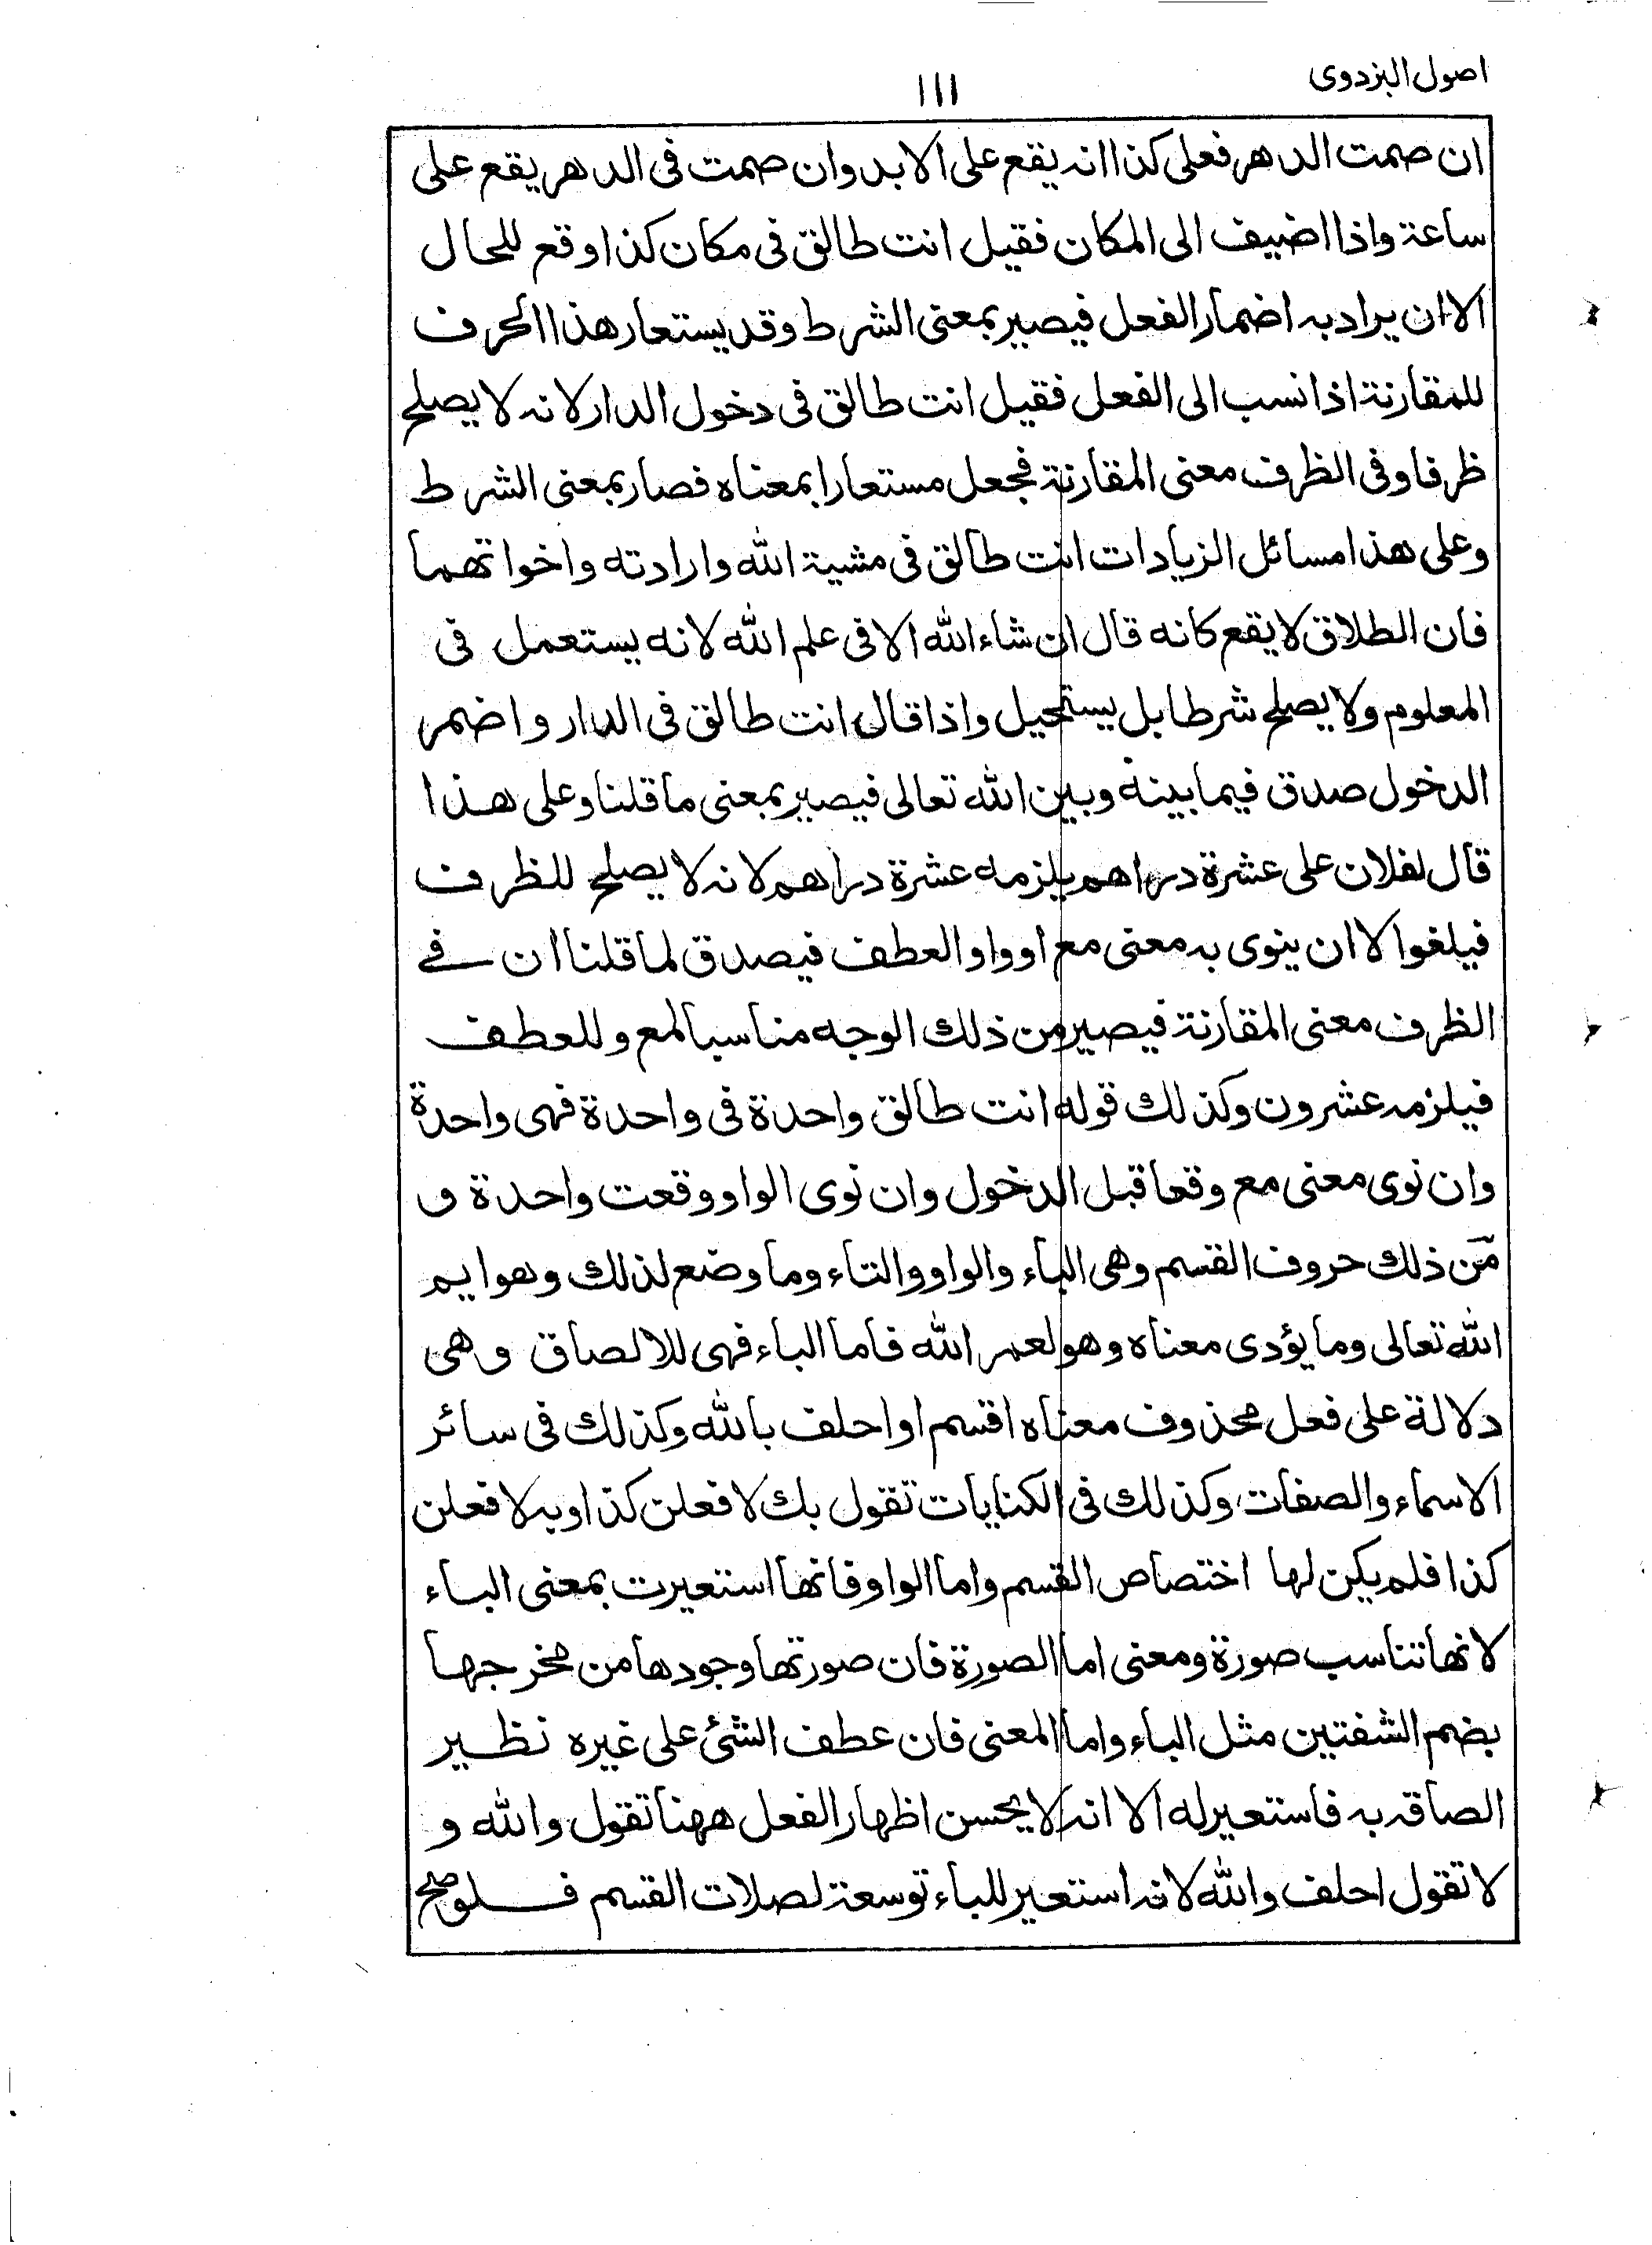 اصول البزدوى
١١١
ان صمت الدهر فعلى كذا انه يقع على الابد وان صمت فى الدهر يقع على
ساعة واذا اضيف الى المكان فقيل انت طالق فى مكان كذا وقع للحال
الا ان يراد به اضمار الفعل فيصير بمعنى الشرط وقد يستعار هذا الحرف
للمقارنة اذا نسب الى الفعل فقيل انت طالق فى دخول الدار لانه لا يصلح
ظرفا وفى الظرف معنى المقارنة فجعل مستعارا بمعناه فصار بمعنى الشرط
وعلى هذا مسائل الزيادات انت طالق فى مشية الله وارادته واخواتهما
فان الطلاق لا يقع كانه قال ان شاء الله الا فى علم الله لانه يستعمل فى
المعلوم ولا يصلح شرطا بل يستحيل واذا قال انت طالق فى الدار واضمر
الدخول صدق فيما بينه وبين الله تعالى فيصير بمعنى ما قلنا وعلى هذا
قال لفلان على عشرة دراهم يلزمه عشرة دراهم لانه لا يصلح للظرف
فيلغوا لا ان ينوى به معنى مع او واو العطف فيصدق لما قلنا ان فى
الظرف معنى المقارنة فيصير من ذلك الوجه مناسبا لمع وللعطف
فيلزمه عشرون وكذلك قوله انت طالق واحدة فى واحدة فهى واحدة
وان نوى معنى مع وقعا قبل الدخول وان نوى الواو وقعت واحدة و
من ذلك حروف القسم وهى الباء والواو والتاء وما وضع لذلك وهو ايم
الله تعالى وما يؤدى معناه وهو لعمر الله فاما الباء فهى للالصاق وهى
دلالة على فعل محذوف معناه اقسم او احلف بالله وكذلك فى سائر
الاسماء والصفات وكذلك فى الكنايات تقول بك لافعلن كذا وبه لافعلن
كذا فلم يكن لها اختصاص القسم واما الواو فانها استعيرت بمعنى الباء
لانها تناسب صورة ومعنى اما الصورة فان صورتها وجودها من مخرجها
بضم الشفتين مثل الباء واما المعنى فان عطف الشئ على غيره نظير
الصاقه به فاستعير له الا انه لا يحسن اظهار الفعل ههنا تقول والله و
لا تقول احلف والله لانه استعير للباء توسعة لصلات القسم فلو صح